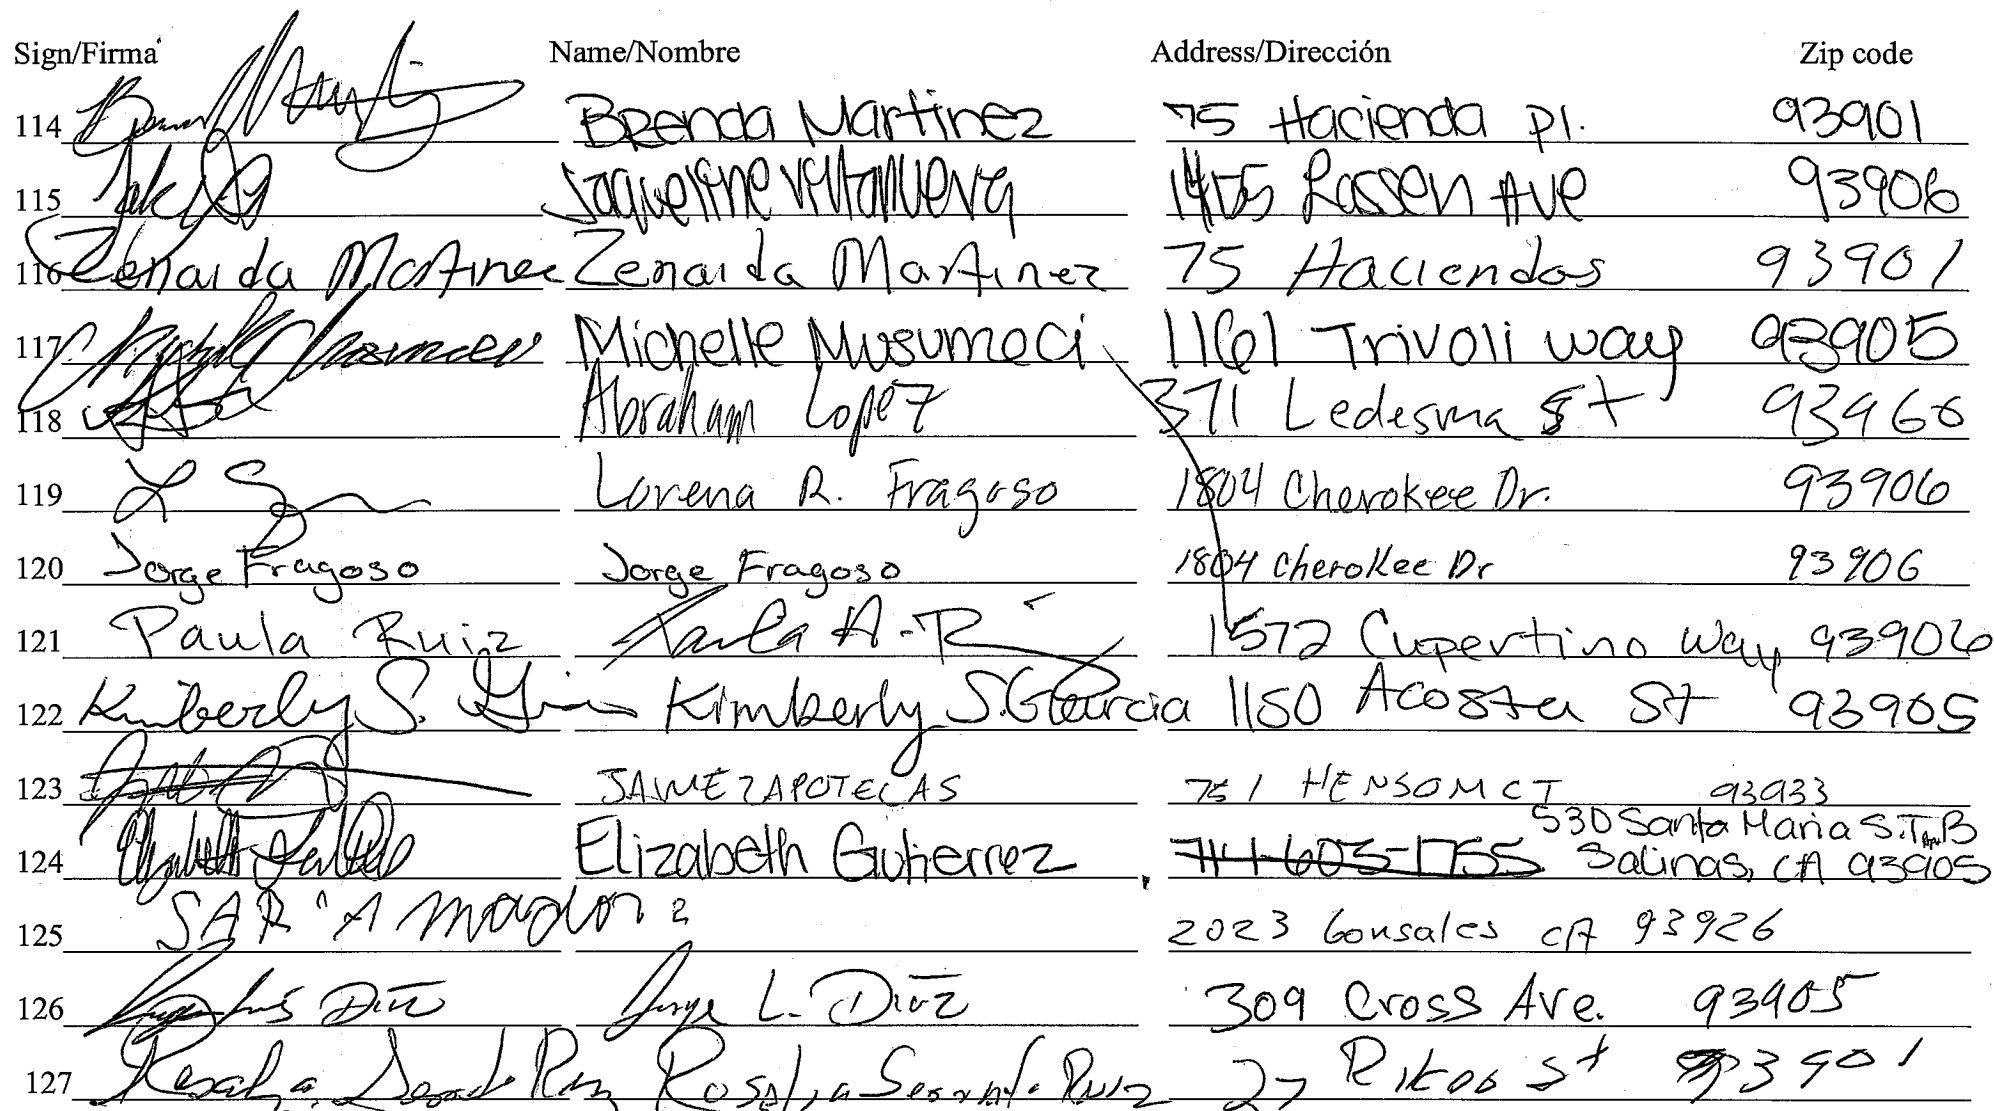 Sign/Firma Name/Nombre Address/Dirección Zip code
114 Brenda Martinez 75 Hacienda pl. 93901
115 Jaqueline Villanueva Lassen Ave 93906
116 Zenaida Martinez Zenaida Martinez 75 Haciendas 93901
117 Michelle Musumeci 1161 Trivoli way 93905
118 Abraham Lopez 371 Ledesma St 93960
119 Lorena R. Fragoso 1804 Cherokee Dr. 93906
120 Jorge Fragoso Jorge Fragoso 1804 Cherokee Dr 93906
121 Paula Ruiz Paula A. 1572 Cupertino Way 93906
122 Kimberly S. Kimberly S. Garcia 1150 Acosta St 93905
123 JAIME ZAPOTECAS 751 HENSOM CT 93933
530 Santa Maria S.T. B
124 Elizabeth Gutierrez 714-603-1755 Salinas, CA 93905
125 Amador 2023 Gonsales CA 93926
126 Luis Diaz Jorge L. Diaz 309 Cross Ave. 93905
127 Rosalia Ruiz 27 St 93901